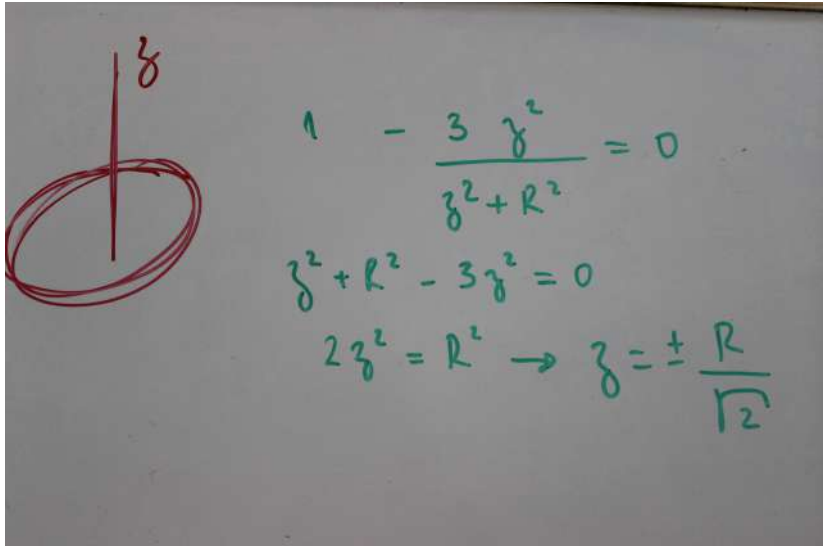 z
1 - 3 z² / (z² + R²) = 0
z² + R² - 3z² = 0
2z² = R² → z = ± R / √2